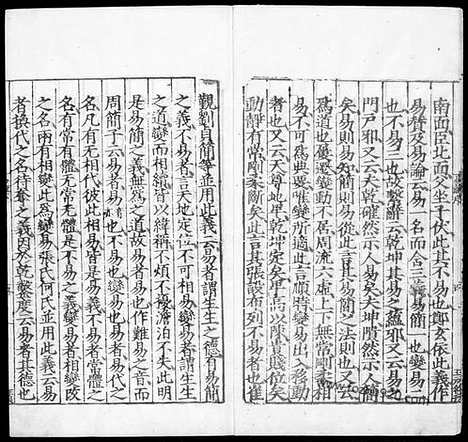 南面臣北面父坐子伏此其不易也鄭玄依此義作
易贊及易論云易一名而含三義易簡一也變易二
也不易三也故繫辭云乾坤其易之蘊邪又云易之
門戶邪又云夫乾確然示人易矣夫坤隤然示人簡
矣易則易知簡則易從此言其易簡之法則也又云
為道也屢遷變動不居周流六虛上下無常剛柔相
易不可為典要唯變所適此言順時變易出入移動
者也又云天尊地卑乾坤定矣卑高以陳貴賤位矣
動靜有常剛柔斷矣此言其張設布列不易者也崔
覲劉貞簡等並用此義云易者謂生生之德有易簡
之義不易者言天地定位不可相易變易者謂生生
之道變而相續皆以緯稱不煩不擾澹泊不失此明
是易簡之義無為之道故易者易也作難易之音而
周簡子云易者易也不易也變易也易者易代之
名凡有無相代彼此相易皆是易義不易者常體之
名有常有體無常無體是不易之義變易者相變改
之名兩有相變此為變易張氏何氏並用此義云易
者換代之名待奪之義因於乾鑿度云易者其德也